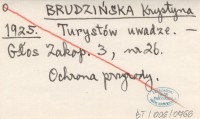 BRUDZIŃSKA Krystyna
1925. Turystów uwadze. –
Głos Zakop. 3, na 26.
Ochrona przyrody.